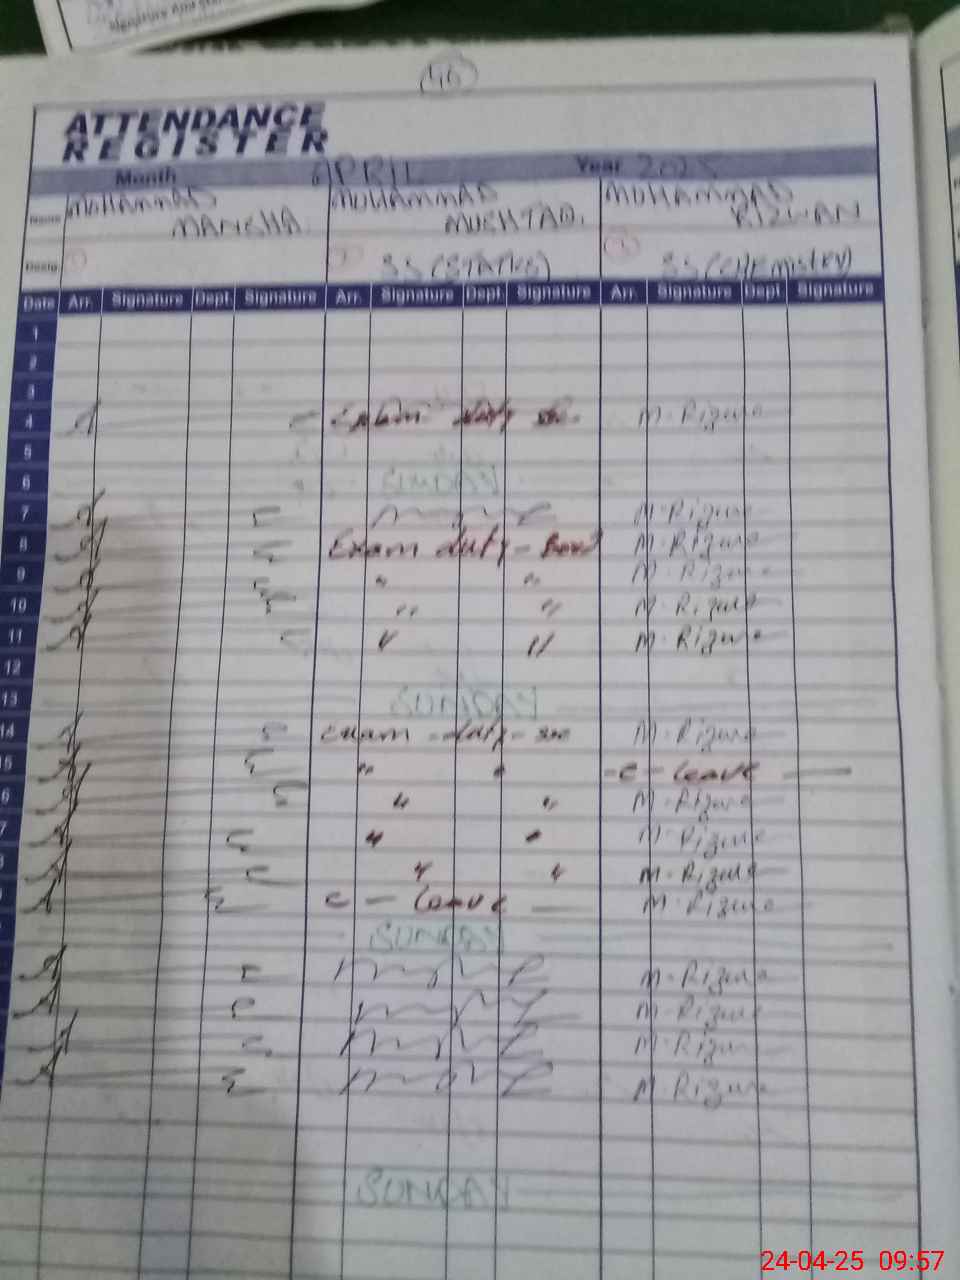 46
ATTENDANCE
REGISTER
Month APRIL Year 2025
Name MUHAMMAD MANSHA MUHAMMAD MUSHTAQ. MUHAMMAD RIZWAN
Desig. 1 2 SS (STATS) 3 SS (CHEMISTRY)
Date Arr. Signature Dept. Signature Arr. Signature Dept. Signature Arr. Signature Dept. Signature
1
2
3
4 Exam duty M. Rizwan
5
6 SUNDAY
7 M. Rizwan
8 Exam duty - M. Rizwan
9 " " M. Rizwan
10 " " M. Rizwan
11 " " M. Rizwan
12
13 SUNDAY
14 exam - duty - M. Rizwan
15 " " - C - leave
6 " " M. Rizwan
7 " " M. Rizwan
8 " " M. Rizwan
9 C - leave M. Rizwan
SUNDAY
M. Rizwan
M. Rizwan
M. Rizwan
M. Rizwan
SUNDAY
24-04-25 09:57